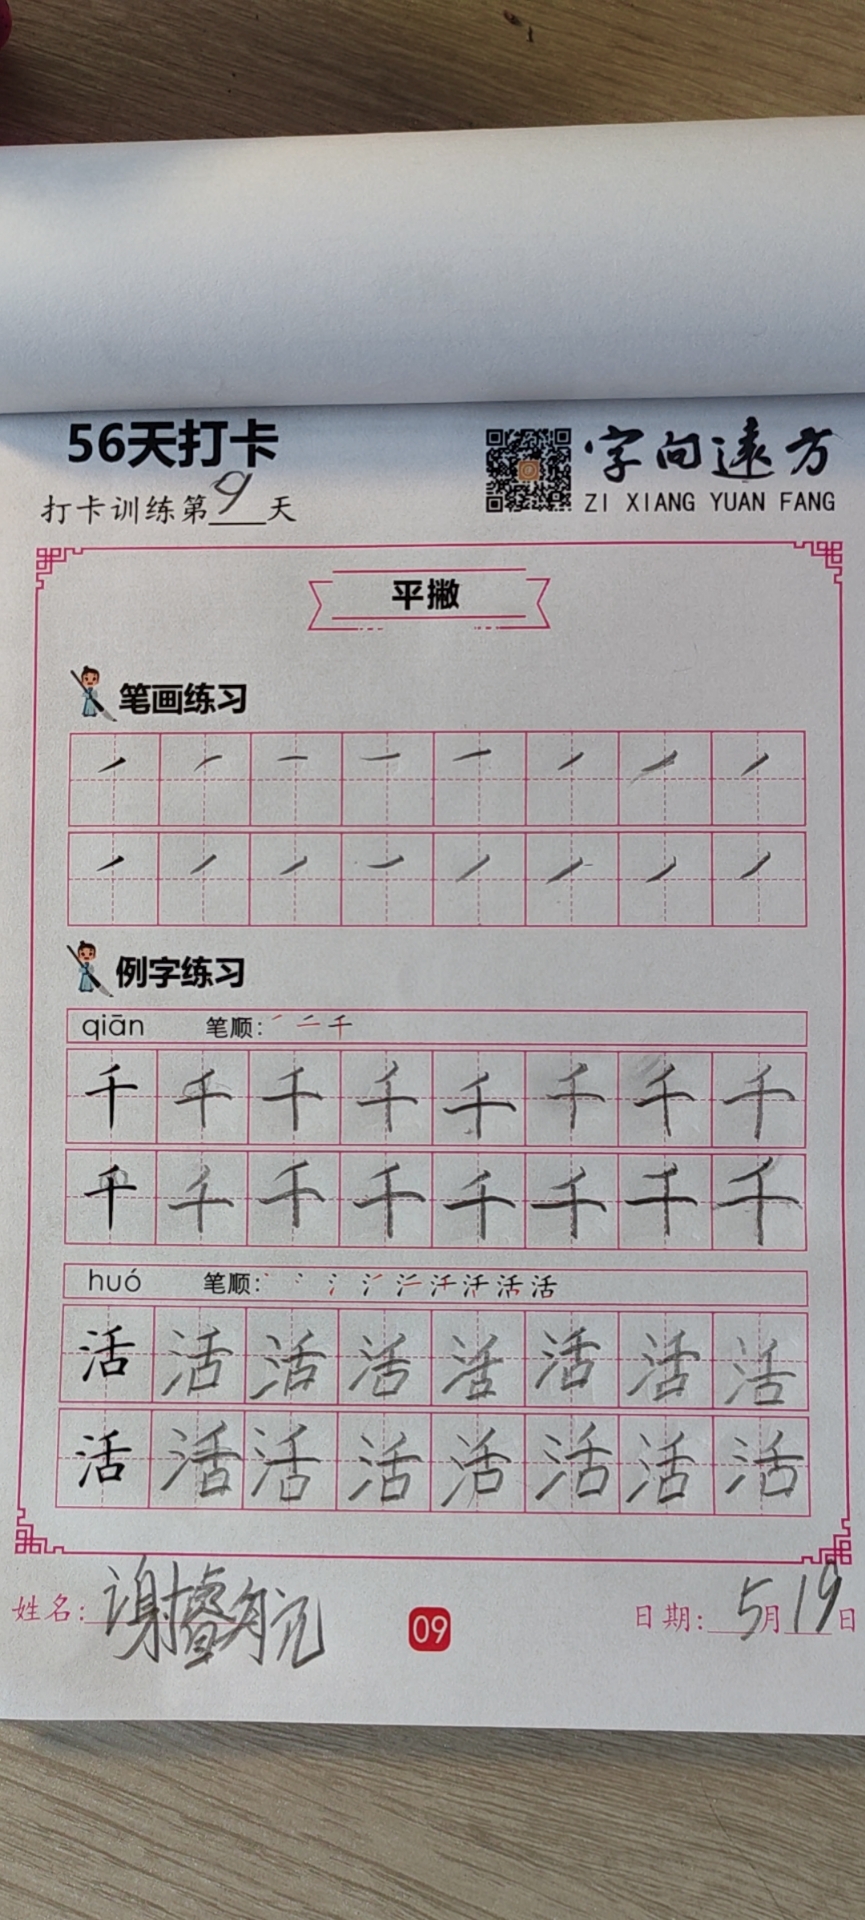 56天打卡
字向遠方
打卡训练第9天
ZI XIANG YUAN FANG
平撇
笔画练习
例字练习
qiān 笔顺: ㇒ 二 千
千 千 千 千 千 千 千 千
千 千 千 千 千 千 千 千
huó 笔顺: 活
活 活 活 活 活 活 活 活
活 活 活 活 活 活 活 活
姓名: 谢睿航 09 日期: 5月19日